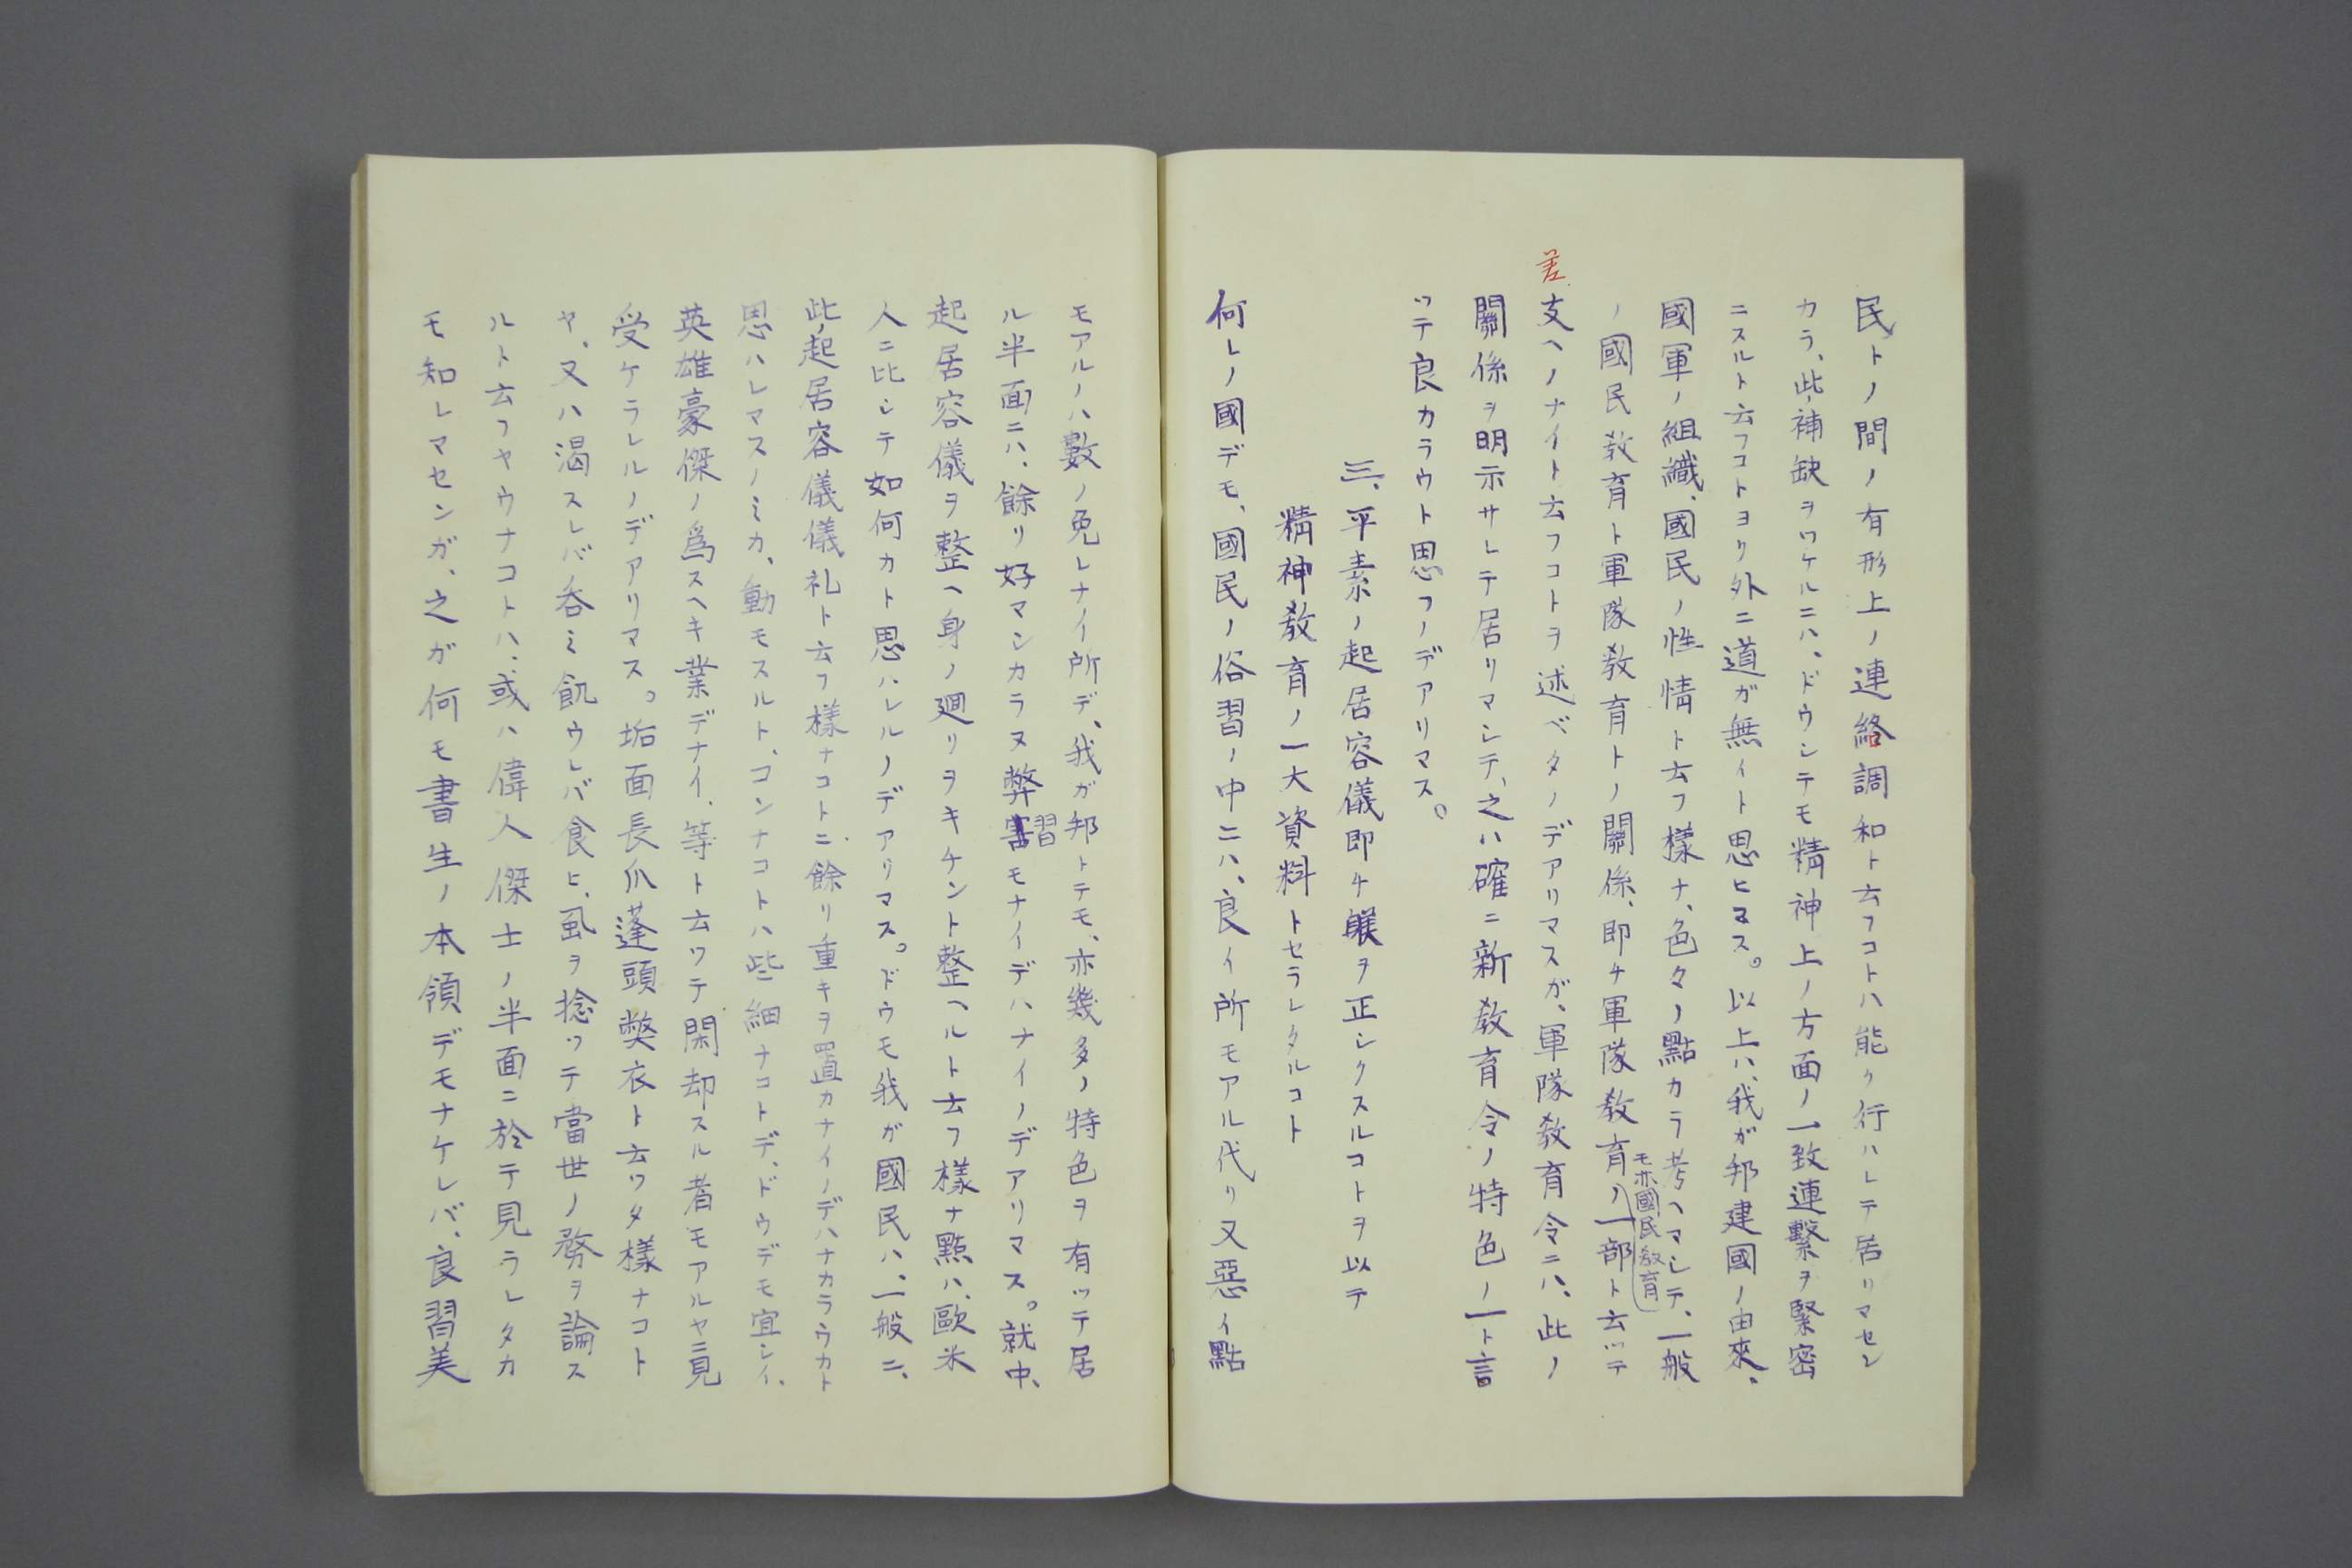 民トノ間ノ有形上ノ連絡調和ト云フコトハ能ク行ハレテ居リマセン
カラ、此ノ補缺ヲツケルニハ、ドウシテモ精神上ノ方面ノ一致連繫ヲ緊密
ニスルト云フコトヨリ外ニ道ガ無イト思ヒマス。以上ハ、我ガ邦建國ノ由來、
國軍ノ組織、國民ノ性情ト云フ樣ナ、色々ノ點カラ考ヘマシテ、一般
ノ國民敎育ト軍隊敎育トノ關係、即チ軍隊敎育ノ一部ト云ツテ
モ亦國民敎育
差
支ヘノナイト云フコトヲ述ベタノデアリマスガ、軍隊敎育令ニハ、此ノ
關係ヲ明示サレテ居リマシテ、之ハ確ニ新敎育令ノ特色ノ一ト言
ツテ良カラウト思フノデアリマス。
三、平素ノ起居容儀即チ躾ヲ正シクスルコトヲ以テ
精神敎育ノ一大資料トセラレタルコト
何レノ國デモ、國民ノ俗習ノ中ニハ、良イ所モアル代リ又惡イ點
モアルノハ數ノ免レナイ所デ、我ガ邦トテモ、亦幾多ノ特色ヲ有ツテ居
ル半面ニハ、餘リ好マシカラヌ弊習モナイデハナイノデアリマス。就中、
起居容儀ヲ整ヘ身ノ廻リヲキチント整ヘルト云フ樣ナ點ハ、歐米
人ニ比シテ如何カト思ハレルノデアリマス。ドウモ我ガ國民ハ、一般ニ、
此ノ起居容儀儀礼ト云フ樣ナコトニ、餘リ重キヲ置カナイノデハナカラウカト
思ハレマスノミカ、動モスルト、コンナコトハ些細ナコトデ、ドウデモ宜シイ、
英雄豪傑ノ爲スヘキ業デナイ、等ト云ツテ閑却スル者モアルヤニ見
受ケラレルノデアリマス。垢面長爪蓬頭弊衣ト云ツタ樣ナコト
ヤ、又ハ渴スレバ呑ミ飢ウレバ食ヒ、虱ヲ捻ツテ當世ノ務ヲ論ス
ルト云フヤウナコトハ、或ハ偉人傑士ノ半面ニ於テ見ラレタカ
モ知レマセンガ、之ガ何モ書生ノ本領デモナケレバ、良習美